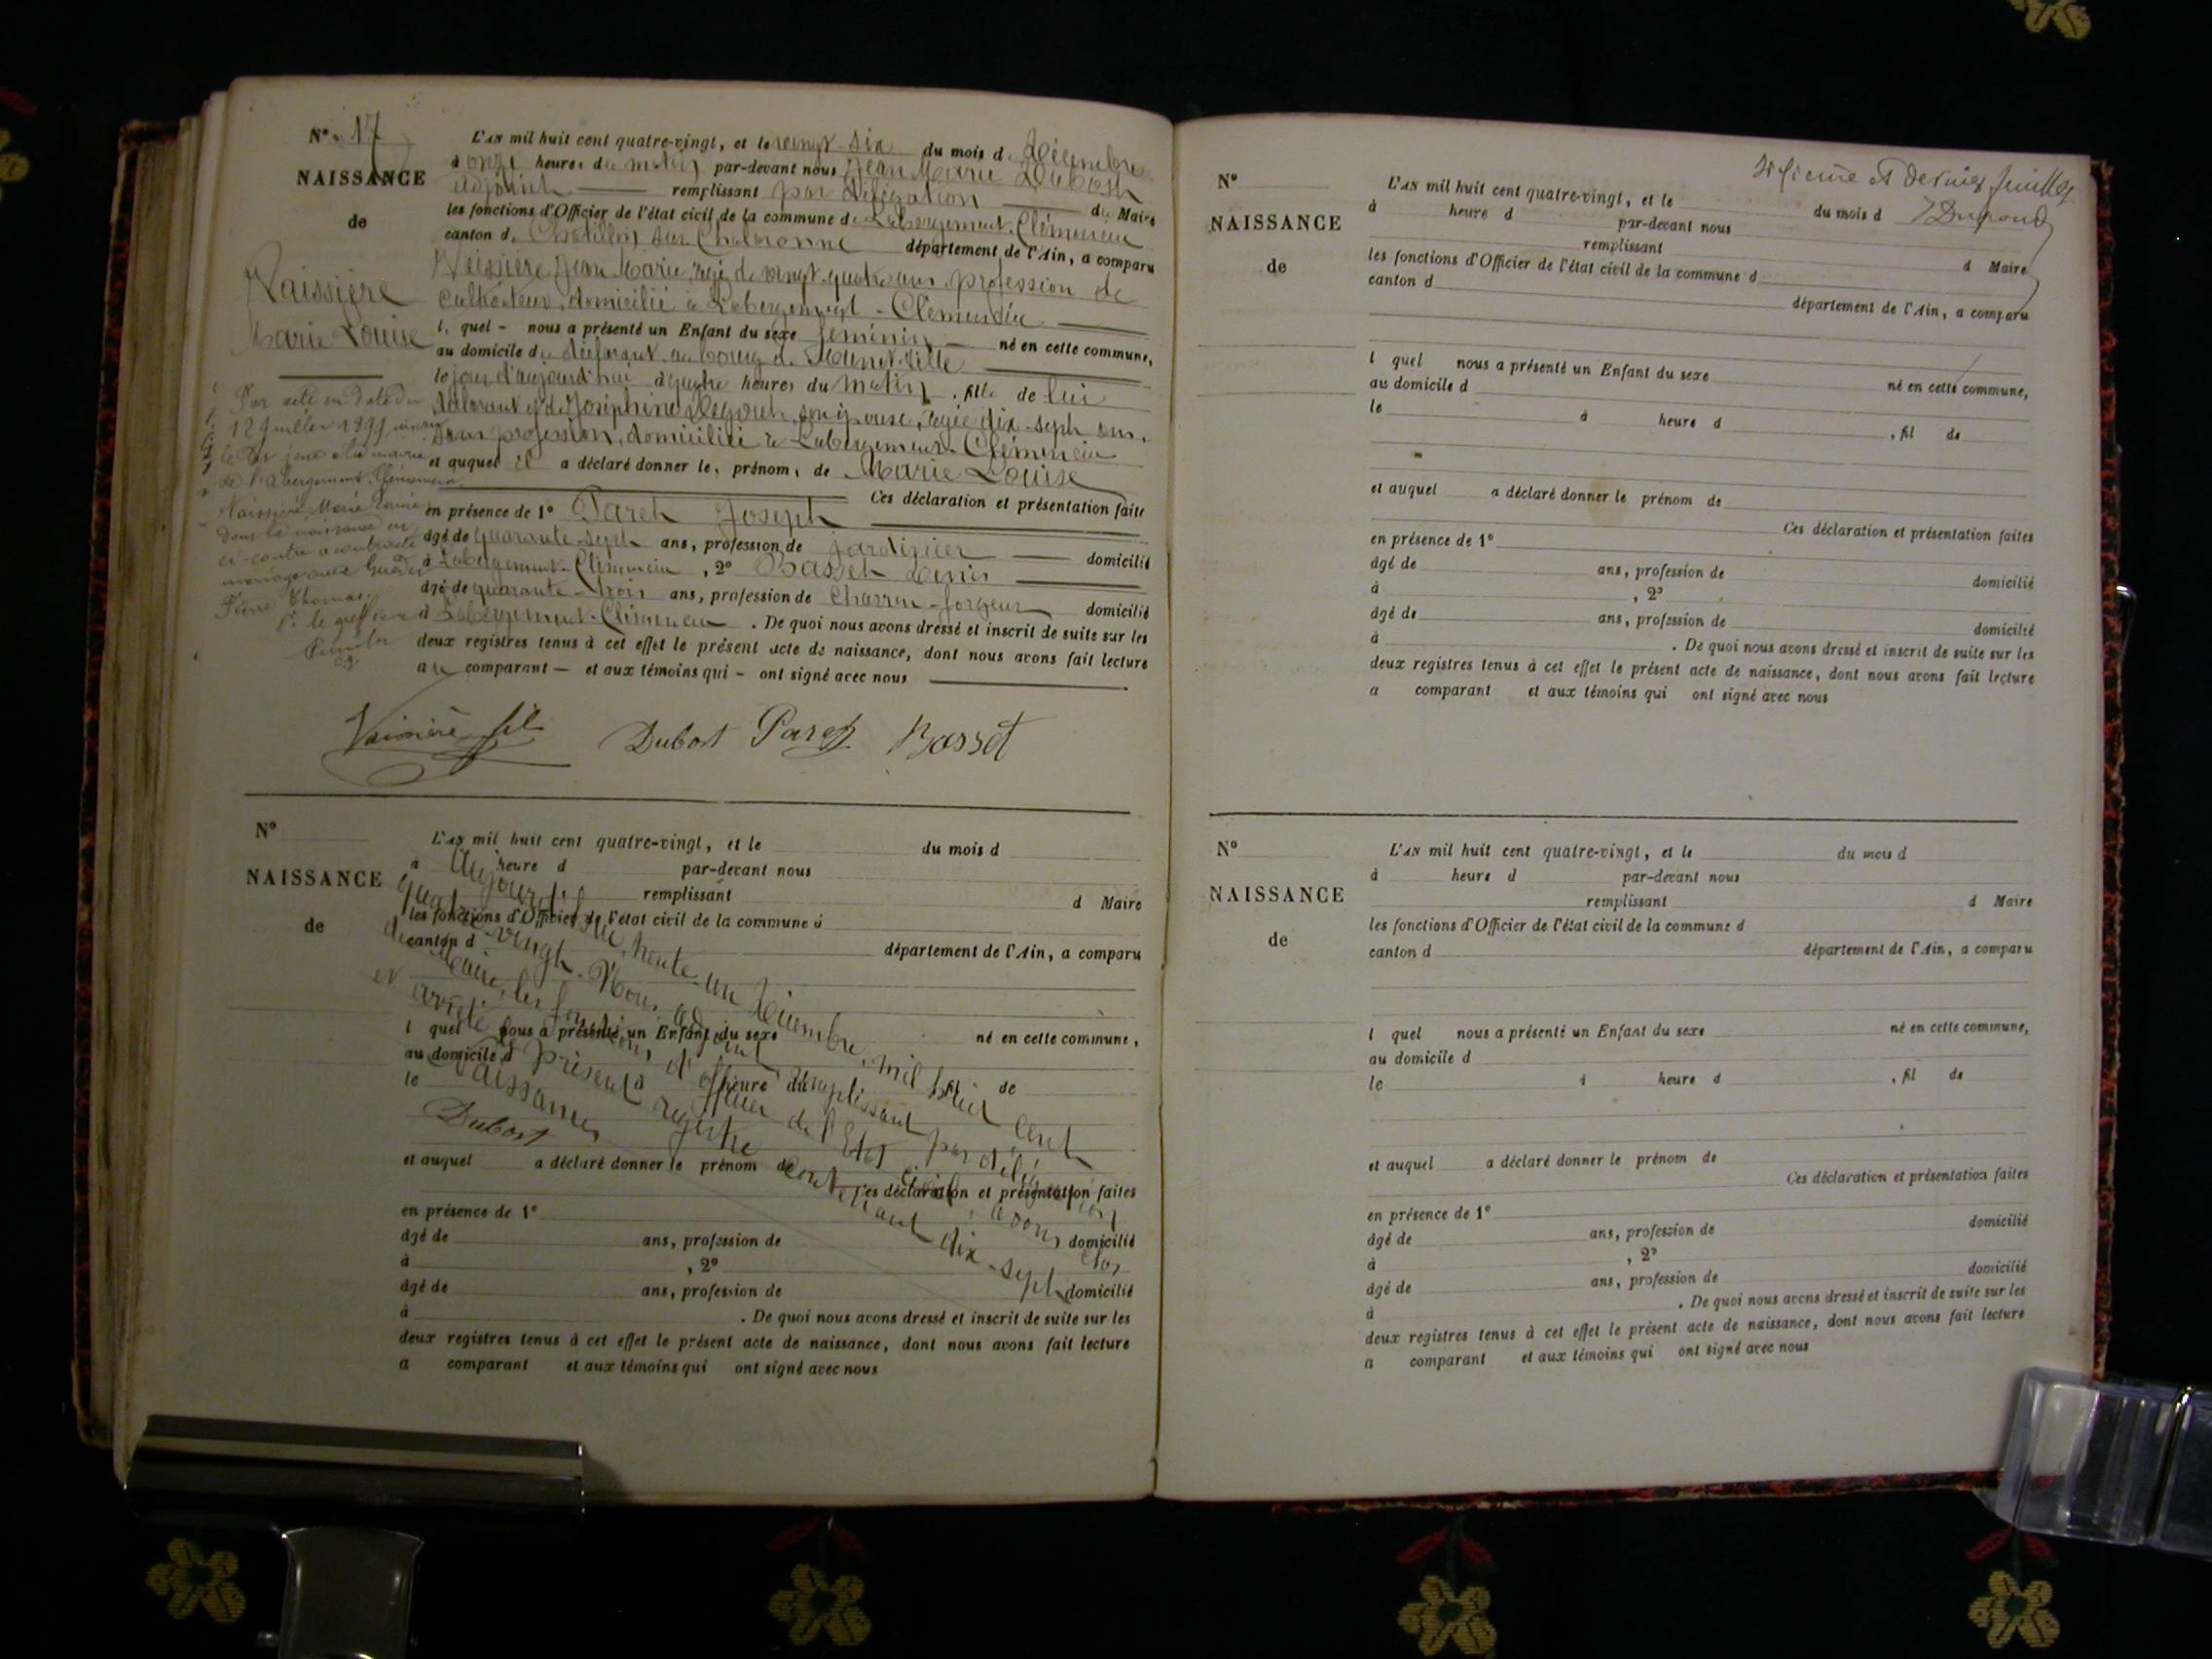 N° 17
NAISSANCE
de
Vaissière
Marie Louise
L'AN mil huit cent quatre-vingt, et le vingt-six du mois d Décembre
à onze heures du matin par-devant nous Jean Marie Dubost
adjoint remplissant par délégation du Maire
les fonctions d'Officier de l'état civil de la commune de Labergement-Clémencia
canton de Chatillon sur Chalaronne département de l'Ain, a comparu
Vaissière Jean Marie, âgé de vingt-quatre ans, profession de
cultivateur, domicilié à Labergement-Clémencia
l quel nous a présenté un Enfant du sexe féminin né en cette commune,
au domicile du déclarant, au bourg de
le jour d'aujourd'hui à quatre heures du matin, fille de lui
déclarant et de Joséphine son épouse, âgée dix-sept ans,
sans profession, domiciliée à Labergement-Clémencia
et auquel il a déclaré donner les prénoms de Marie Louise
Ces déclaration et présentation faites
en présence de 1° Paret Joseph
âgé de quarante-sept ans, profession de jardinier domicilié
à Labergement-Clémencia, 2° Basset Denis
âgé de quarante-trois ans, profession de charron-forgeur domicilié
à Labergement-Clémencia. De quoi nous avons dressé et inscrit de suite sur les
deux registres tenus à cet effet le présent acte de naissance, dont nous avons fait lecture
au comparant et aux témoins qui ont signé avec nous
Par acte en date du
12 Juillet
de l'abergement-Clémencia
Vaissière Marie Louise
dont la naissance est
ci-contre a contracté
mariage avec
Thomas
P. le greffier
Vaissière fils Dubost Paret Basset
N°
NAISSANCE
de
L'AN mil huit cent quatre-vingt, et le du mois d
à heure d par-devant nous
remplissant d Maire
les fonctions d'Officier de l'état civil de la commune d
canton d département de l'Ain, a comparu
l quel nous a présenté un Enfant du sexe né en cette commune,
au domicile d
le à heure du , fil de
et auquel a déclaré donner le prénom de
Ces déclaration et présentation faites
en présence de 1°
âgé de ans, profession de domicilié
à , 2°
âgé de ans, profession de domicilié
à . De quoi nous avons dressé et inscrit de suite sur les
deux registres tenus à cet effet le présent acte de naissance, dont nous avons fait lecture
a comparant et aux témoins qui ont signé avec nous
Aujourd'hui, trente-un Décembre, mil huit cent
quatre-vingt. Nous adjoint, remplissant par délégation
du Maire, les fonctions d'officier de l'Etat civil, avons clos
et arrêté le présent registre contenant dix-sept
naissances
Dubost
et dernier feuillet
N°
NAISSANCE
de
L'AN mil huit cent quatre-vingt, et le du mois d
à heure d par-devant nous
remplissant d Maire
les fonctions d'Officier de l'état civil de la commune d
canton d département de l'Ain, a comparu
l quel nous a présenté un Enfant du sexe né en cette commune,
au domicile d
le à heure d , fil de
et auquel a déclaré donner le prénom de
Ces déclaration et présentation faites
en présence de 1°
âgé de ans, profession de domicilié
à , 2°
âgé de ans, profession de domicilié
à . De quoi nous avons dressé et inscrit de suite sur les
deux registres tenus à cet effet le présent acte de naissance, dont nous avons fait lecture
a comparant et aux témoins qui ont signé avec nous
N°
NAISSANCE
de
L'AN mil huit cent quatre-vingt, et le du mois d
à heure d par-devant nous
remplissant d Maire
les fonctions d'Officier de l'état civil de la commune d
canton d département de l'Ain, a comparu
l quel nous a présenté un Enfant du sexe né en cette commune,
au domicile d
le à heure d , fil de
et auquel a déclaré donner le prénom de
Ces déclaration et présentation faites
en présence de 1°
âgé de ans, profession de domicilié
à , 2°
âgé de ans, profession de domicilié
à . De quoi nous avons dressé et inscrit de suite sur les
deux registres tenus à cet effet le présent acte de naissance, dont nous avons fait lecture
a comparant et aux témoins qui ont signé avec nous